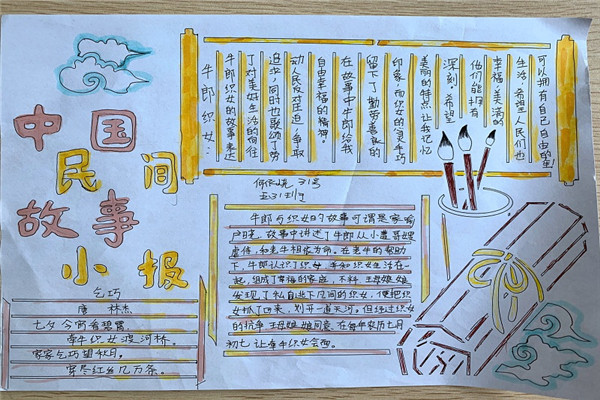 中国
民间
故事
小报
牛郎织女:
牛郎织女的故事表达
了对美好生活的向往
追求,同时也鼓动了劳
动人民反对压迫,争取
自由幸福的精神。
在故事中牛郎给我
留下了勤劳善良的
印象,而织女的灵手巧
美丽的特点让我记忆
深刻。希望
他们能拥有
幸福、美满的
生活,希望人民们也
可以拥有自己自由的
31号
五(3)班
乞巧
唐 林杰
七夕今宵看碧霄,
牵牛织女渡河桥。
家家乞巧望秋月,
穿尽红丝几万条。
牛郎与织女的故事可谓是家喻
户晓。故事中讲述了牛郎从小遭哥嫂
虐待,和老牛相依为命。在老牛的帮助
下,牛郎认识了织女,并和织女生活在一
起,组成了幸福的家庭。不料,王母娘娘
发现了私自逃下凡间的织女,便把织
女抓了回来,划开一道天河。但经过织女
的抗争,王母娘娘同意,在每年农历七月
初七,让牵牛织女会面。